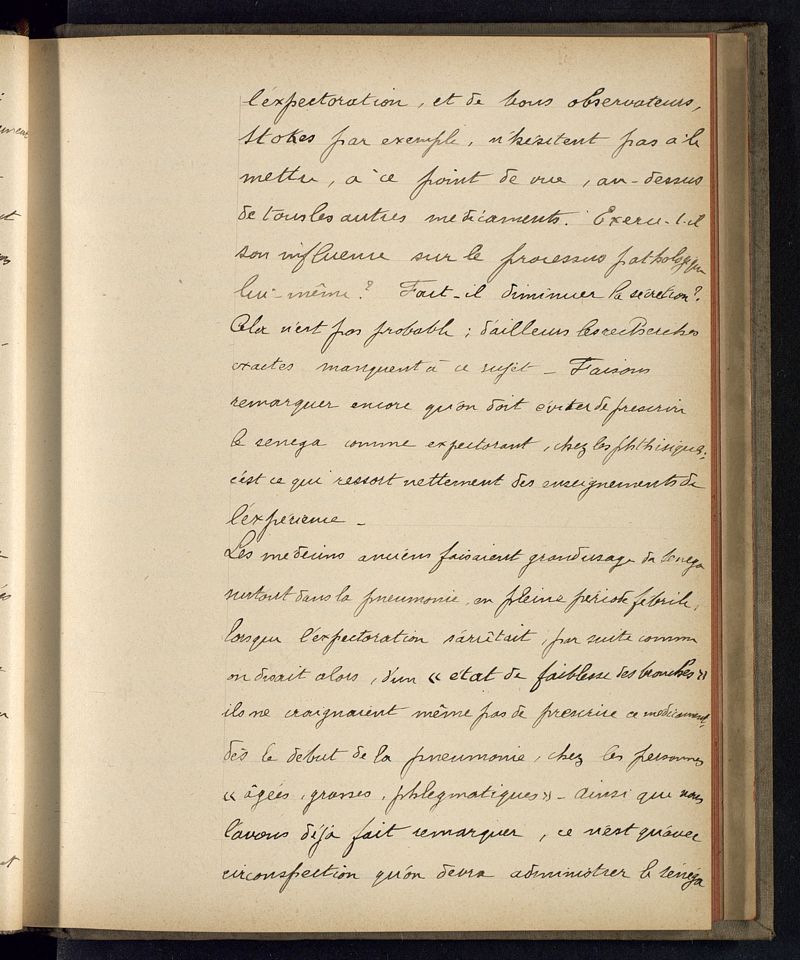 l'expectoration, et de bons observateurs,
Stokes par exemple, n'hésitent pas à le
mettre, à ce point de vue, au-dessus
de tous les autres médicaments. Exerce-t-il
son influence sur le processus pathologique
lui-même? Fait-il diminuer la sécrétion?.
Cela n'est pas probable; d'ailleurs les recherches
exactes manquent à ce sujet - Faisons
remarquer encore qu'on doit éviter de prescrire
le senega comme expectorant, chez les phthisiques;
c'est ce qui ressort nettement des enseignements de
l'expérience -
Les médecins anciens faisaient grand usage du senega
surtout dans la pneumonie, en pleine période fébrile,
lorsque l'expectoration s'arrêtait, par suite comme
on disait alors, d'un « état de faiblesse des bronches »
ils ne craignaient même pas de prescrire ce médicament
dès le début de la pneumonie, chez les personnes
« âgées, grasses, phlegmatiques » - ainsi que nous
l'avons déjà fait remarquer, ce n'est qu'avec
circonspection qu'on devra administrer le sénéga